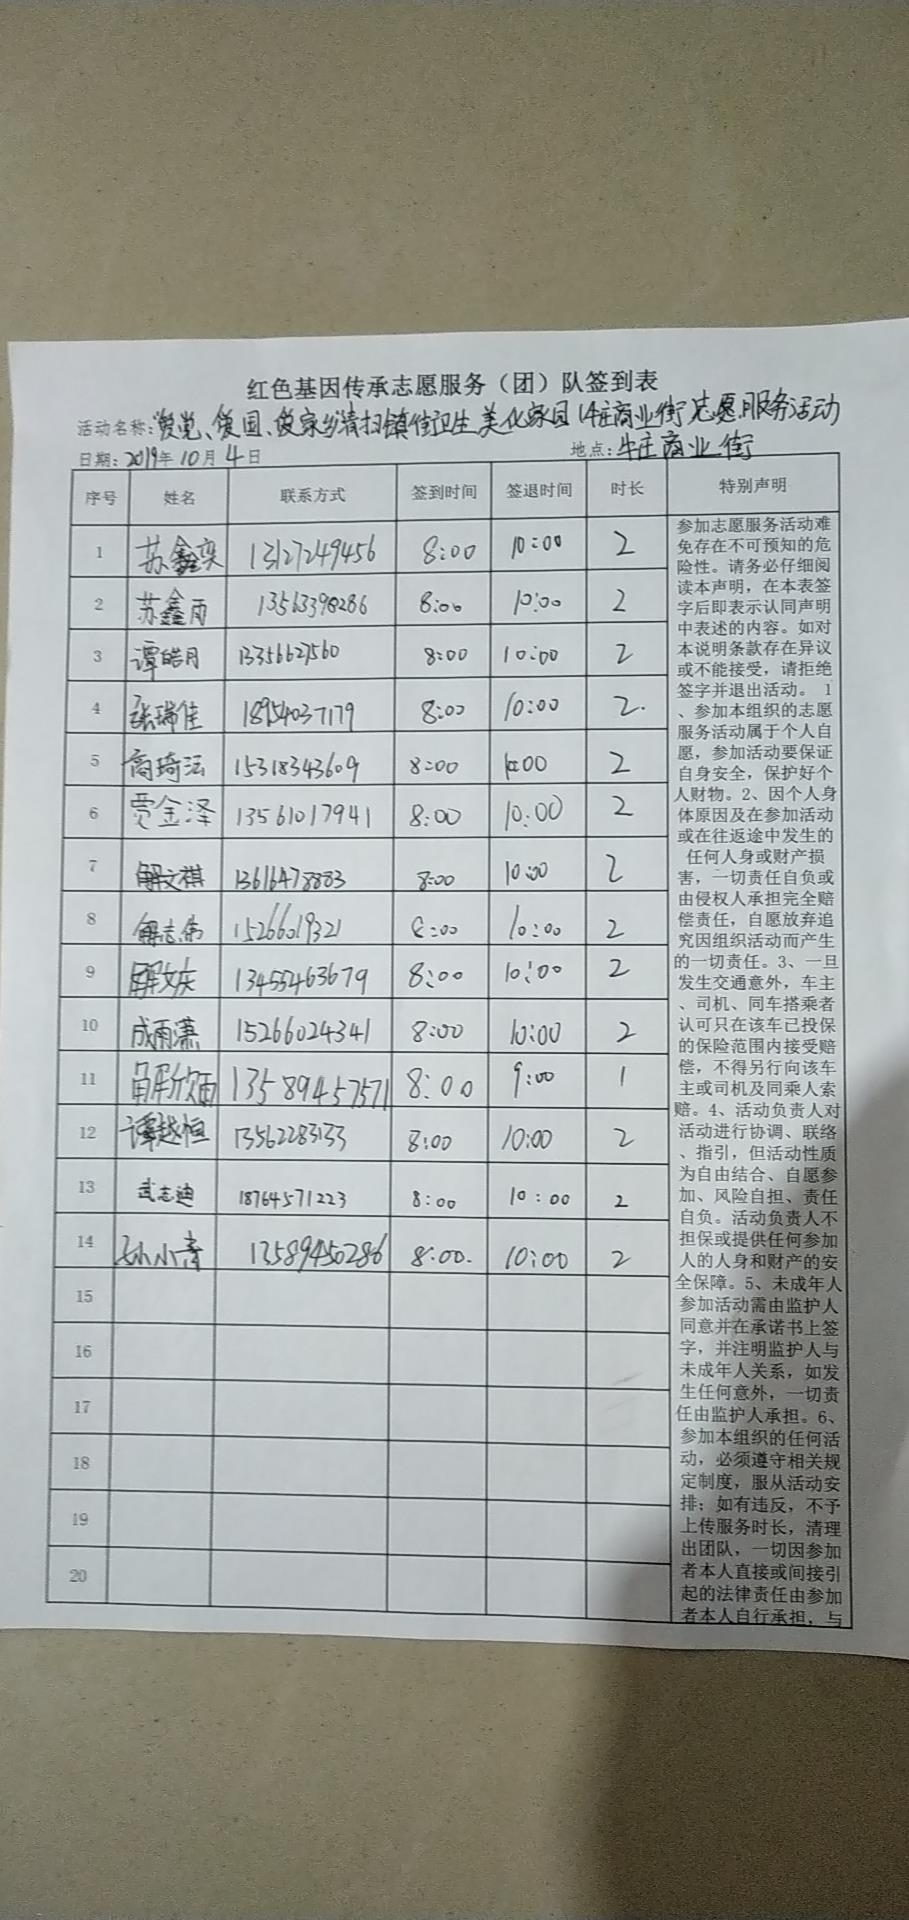 红色基因传承志愿服务（团）队签到表
活动名称：爱党、爱国、爱家乡清扫镇街卫生美化家园（牛庄商业街）志愿服务活动
日期：2019年10月4日 地点：牛庄商业街
序号 姓名 联系方式 签到时间 签退时间 时长 特别声明
1 苏鑫奕 13127249456 8:00 10:00 2
2 苏鑫雨 13563398286 8:00 10:00 2
3 谭皓月 13356627560 8:00 10:00 2
4 张瑞佳 18954037179 8:00 10:00 2.
5 高琦 15318343609 8:00 10:00 2
6 贾金泽 13561017941 8:00 10:00 2
7 解文祺 13616478883 8:00 10:00 2
8 解志伟 15266019321 8:00 10:00 2
9 解文庆 13455463679 8:00 10:00 2
10 成雨潇 15266024341 8:00 10:00 2
11 解欣雨 13589457571 8:00 9:00 1
12 谭越恒 13562283133 8:00 10:00 2
13 武志迪 18764571223 8:00 10:00 2
14 小青 13589450286 8:00. 10:00 2
15
16
17
18
19
20
参加志愿服务活动难
免存在不可预知的危
险性。请务必仔细阅
读本声明，在本表签
字后即表示认同声明
中表述的内容。如对
本说明条款存在异议
或不能接受，请拒绝
签字并退出活动。 1
、参加本组织的志愿
服务活动属于个人自
愿，参加活动要保证
自身安全，保护好个
人财物。2、因个人身
体原因及在参加活动
或在往返途中发生的
任何人身或财产损
害，一切责任自负或
由侵权人承担完全赔
偿责任，自愿放弃追
究因组织活动而产生
的一切责任。3、一旦
发生交通意外，车主
、司机、同车搭乘者
认可只在该车已投保
的保险范围内接受赔
偿，不得另行向该车
主或司机及同乘人索
赔。4、活动负责人对
活动进行协调、联络
、指引，但活动性质
为自由结合、自愿参
加、风险自担、责任
自负。活动负责人不
担保或提供任何参加
人的人身和财产的安
全保障。5、未成年人
参加活动需由监护人
同意并在承诺书上签
字，并注明监护人与
未成年人关系，如发
生任何意外，一切责
任由监护人承担。6、
参加本组织的任何活
动，必须遵守相关规
定制度，服从活动安
排；如有违反，不予
上传服务时长，清理
出团队，一切因参加
者本人直接或间接引
起的法律责任由参加
者本人自行承担，与